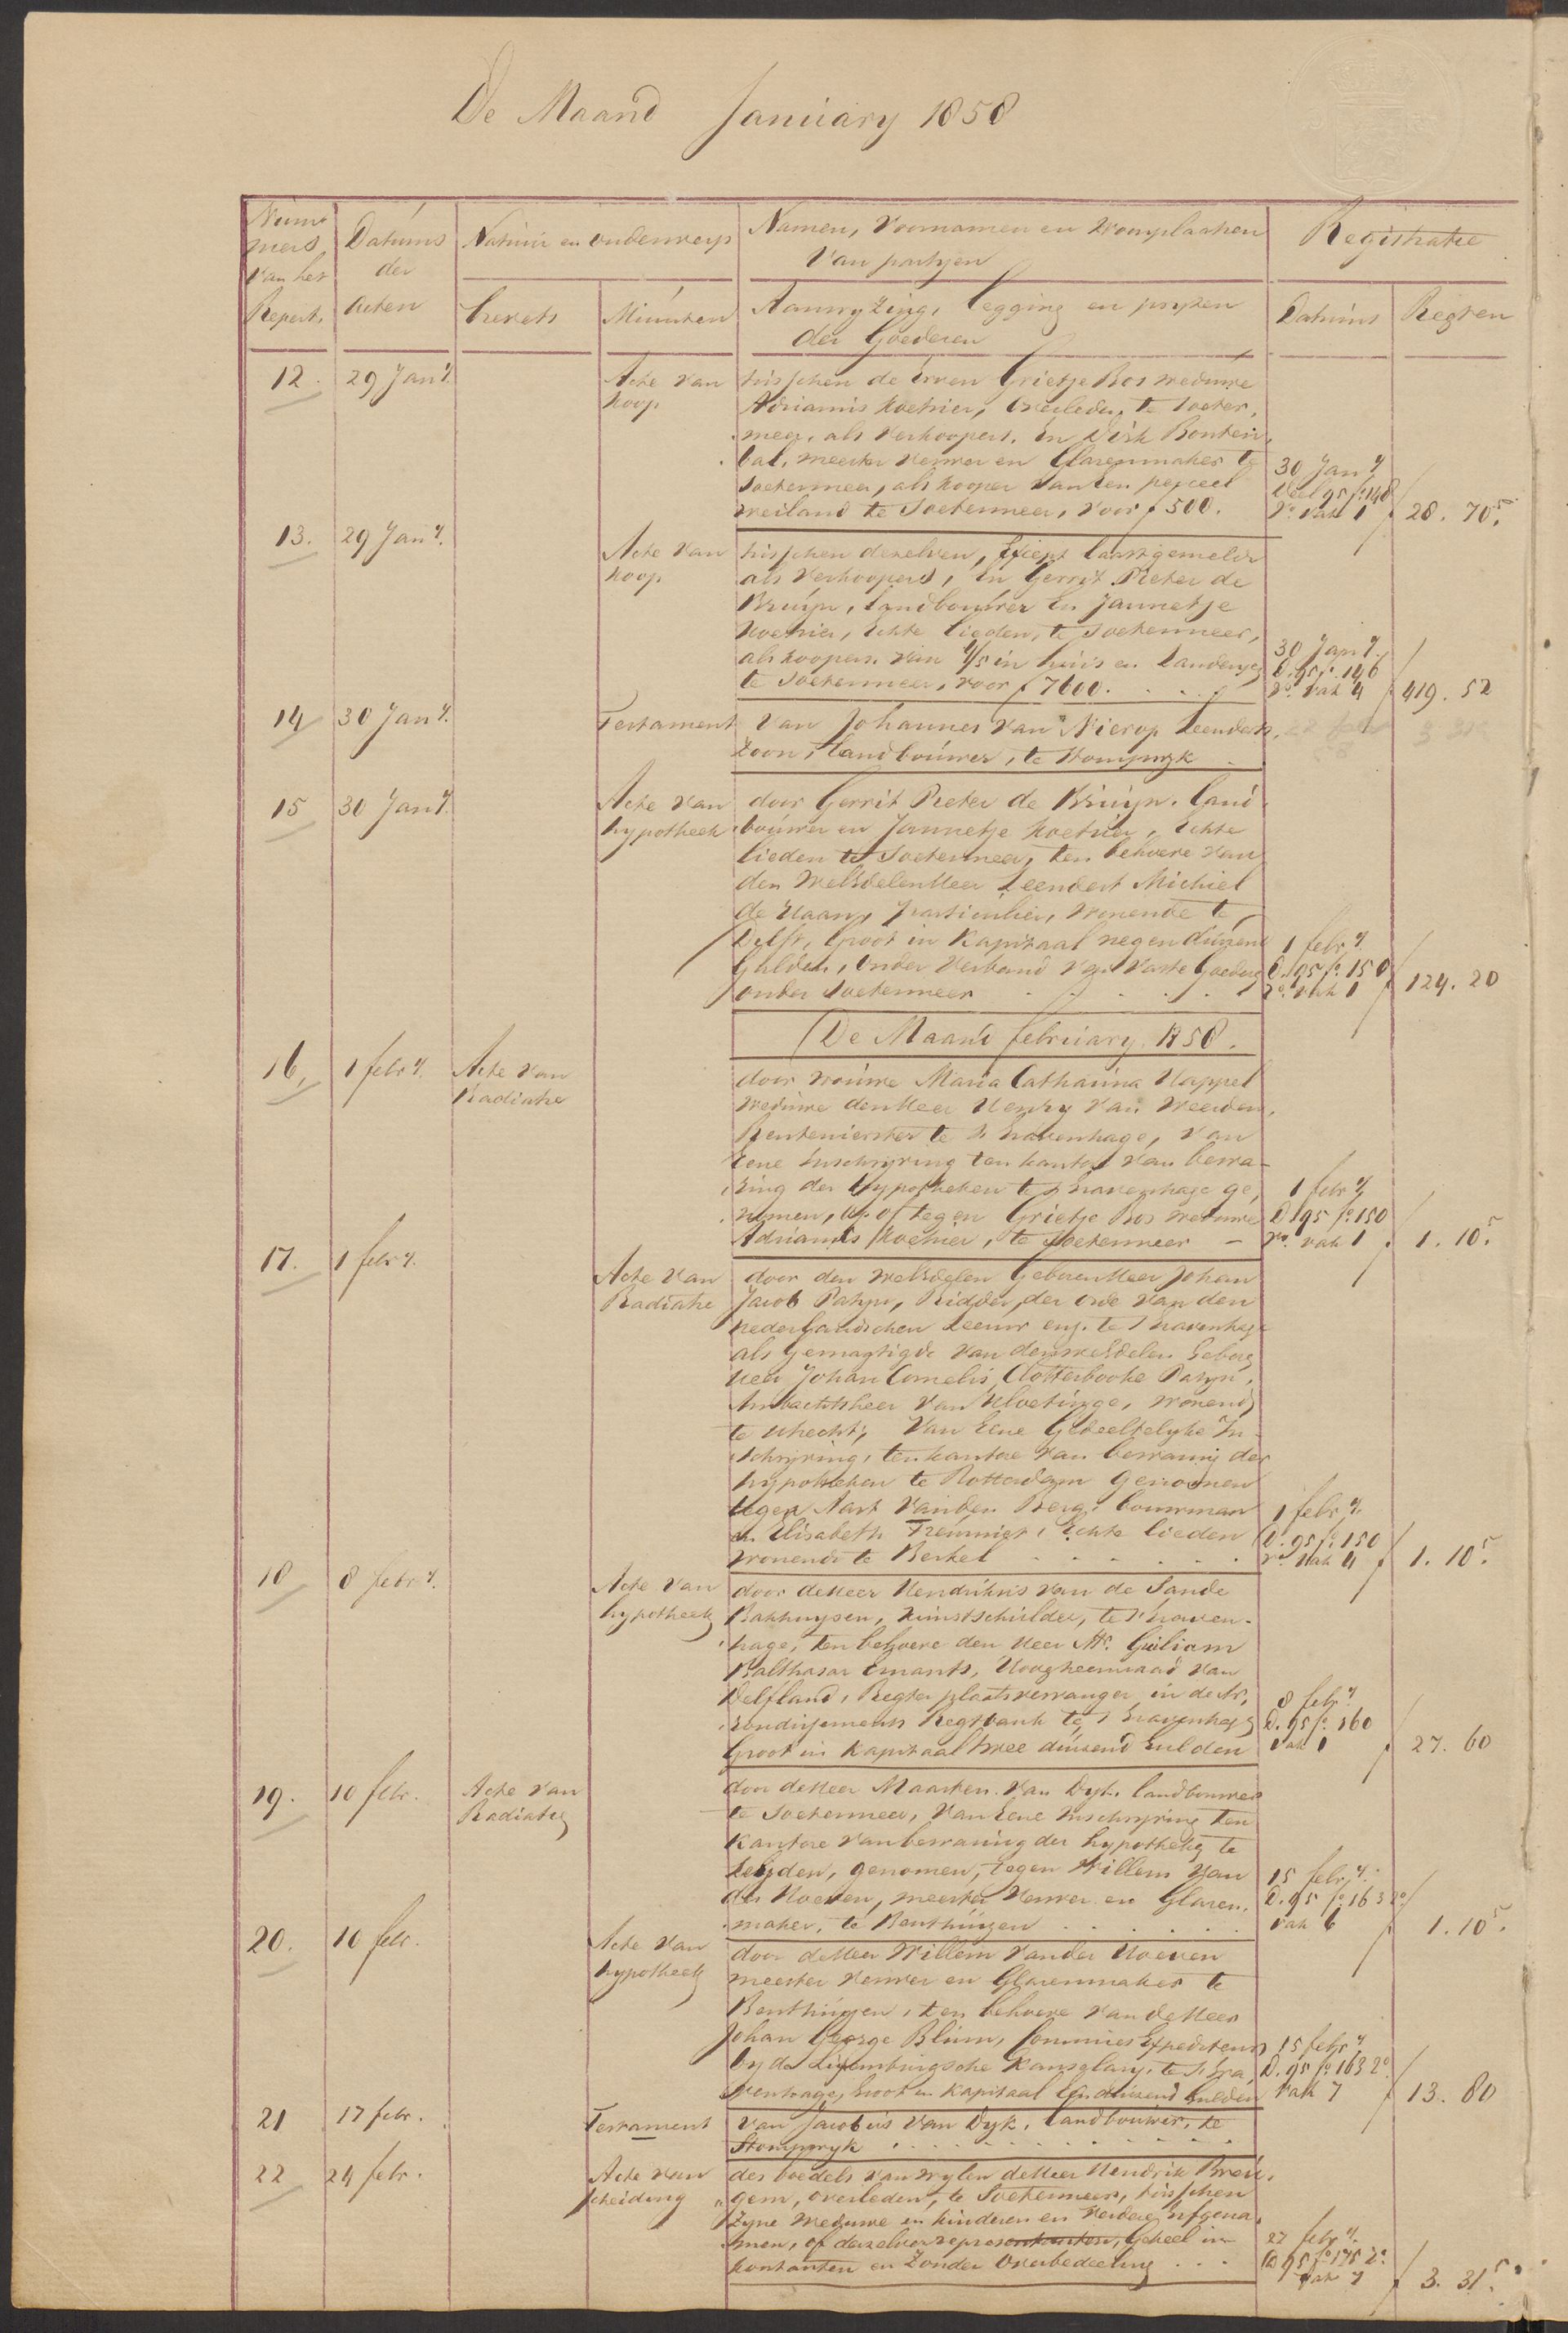 De Maand January 1858
Num-
mers
van het
Repert.
Datums
der
Acten
Natuur en onderwerp
Brevets
Minuten
Namen, Voornamen en Woonplaatsen
van partyen
Aanwyzing, legging en pryzen
der Goederen
Registratie
Datums
Regten
12. 29 Jany.
Acte van
koop
tusschen de Erven Grietje Bos weduwe
Adrianus Koetsier, overleden te Soeter,
meer, als Verkoopers, en Dirk Bonten,
bal, meester verwer en Glazenmaker te
Soetermeer, als kooper van een perceel
weiland te Soetermeer, voor f 500.
30 Jany
Deel 95 fo. 148
vo. vak 1
f 28. 70 5.
13. 29 Jany.
Acte van
koop
tusschen dezelven, Except laastgemelde
als Verkoopers, en Gerrit Pieter de
Bruijn, landbouwer en Jannetje
Koetsier, Echte lieden, te Soetermeer,
als koopers van 4/5 in huis en Landeryen
te Soetermeer, voor f 7600. . . . .
30 Jany.
D. 95 fo. 146
vo. vak 4
f 419. 52
14 30 Jany.
Testament
van Johannes van Nierop Leenderts,
zoon, landbouwer, te Stompwyk .
15 30 Jany.
Acte van
hypotheek
door Gerrit Pieter de Bruijn, land,
bouwer en Jannetje Koetsier, Echte
lieden te Soetermeer, ten behoeve van
den WelEdelenHeer Leendert Michiel
de Haan, particulier, wonende te
Delft, Groot in Kapitaal negen duizend
Gulden, onder Verband van Vaste Goederen
onder Soetermeer . . . . .
1 febry
D. 95 fo. 150
ro. vak 1
f 124. 20
De Maand february 1858.
16, 1 febry.
Acte van
Radiatie
door vrouwe Maria Catharina Happel
weduwe denHeer Henry van Weerden,
Rentenierster te s Gravenhage, van
Eene Inschryving ten kantore van bewa-
ring der hypotheken te s Gravenhage ge,
nomen, op of tegen Grietje Bos weduwe
Adrianus Koetsier, te Soetermeer —
1 febry
D. 95 fo. 150
vo. vak 1
f 1. 10 5.
17. 1 febry.
Acte van
Radiatie
door den WelEdelen GeborenHeer Johan
Jacob Patijn, Ridder der orde van den
nederlandschen Leeuw enz. te s Gravenhage
als gemagtigde van den WelEdelen Geboren
Heer Johan Cornelis Clotterbooke Patijn,
Ambachtsheer van Kloetinge, wonende
te Utrecht, van Eene Gedeeltelyke In-
schryving, ten kantore van bewaring der
hypotheken te Rotterdam Genomen
tegen Aart van den Berg, bouwman
en Elisabeth Treurniet, Echte lieden
wonende te Berkel . . . . . .
1 febry.
D. 95 fo. 150
vo. vak 4
f 1. 10 5.
18 8 febry.
Acte van
hypotheek
door deHeer Hendrikus van de Sande
Bakhuysen, kunstschilder, te s Graven-
hage, ten behoeve den Heer Mr. Guiliam
Balthasar Emants, Hoogheemraad van
Delfland, Regter plaatsvervanger in de Ar,
rondissements Regtbank te s Gravenhage
Groot in Kapitaal twee duizend Gulden
8 febry
D. 95 fo. 160
vak 1
f 27. 60
19. 10 febr.
Acte van
Radiatie
door deHeer Maarten van Dyk, landbouwer
te Soetermeer, van Eene Inschryving ten
kantore van bewaring der hypotheken te
Leyden, genomen, tegen Willem van
der Hoeven, meester Verwer en Glazen,
maker, te Benthuizen . . . . .
15 febry.
D. 95 fo. 163 2o
vak 6
f 1. 10 5.
20. 10 febr.
Acte van
hypotheek
door deHeer Willem van der Hoeven
meester verwer en Glazenmaker te
Benthuizen, ten behoeve van deHeer
Johan George Blum, Commies Expediteur
by de Luxemburgsche Kanselary, te s Gra,
venhage, Groot in Kapitaal Een duizend Gulden
15 febry
D. 95 fo. 163 2o
vak 7
f 13. 80
21 17 febr.
Testament
van Jacobus van Dyk, landbouwer, te
Stompwyk . . . . . . . . .
22 24 febr.
Acte van
scheiding
des boedels van wylen deHeer Hendrik Breu,
gem, overleden, te Soetermeer, tusschen
Zyne Weduwe en kinderen en verdere Erfgena,
men, of derzelver representanten, Geheel in
kontanten en Zonder Overbedeeling . . .
27 febry.
D 95 fo 175 2o.
vak 7
f 3. 31 5.